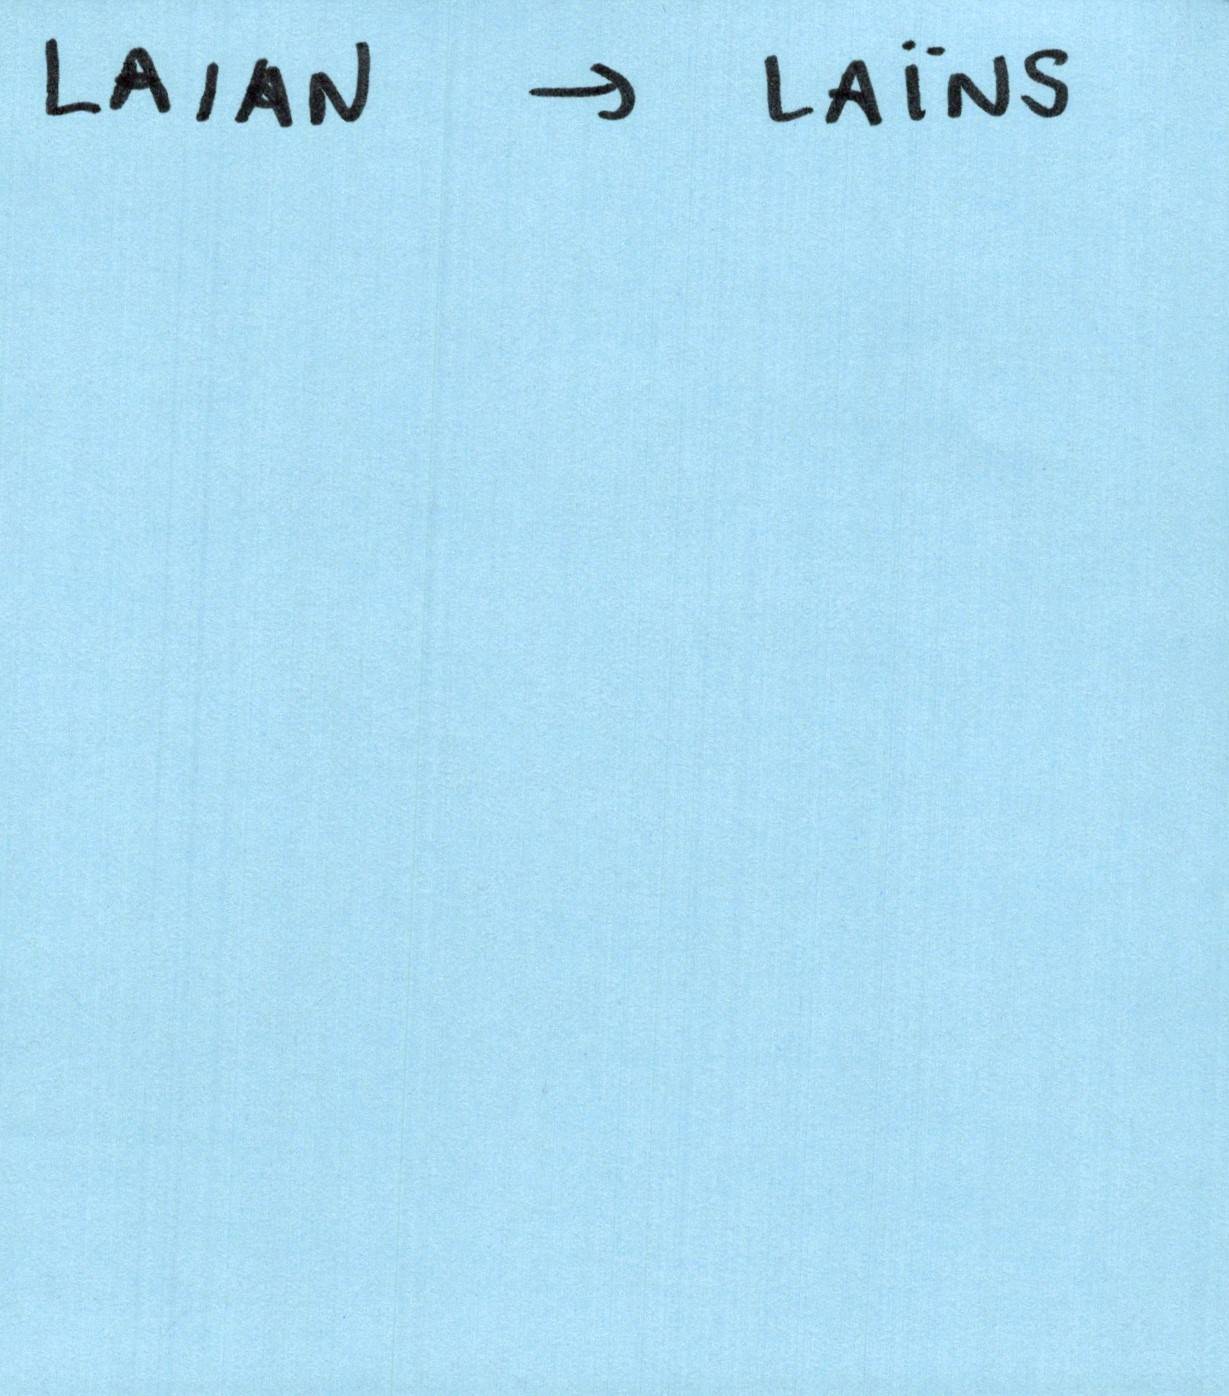 LAIAN → LAÏNS